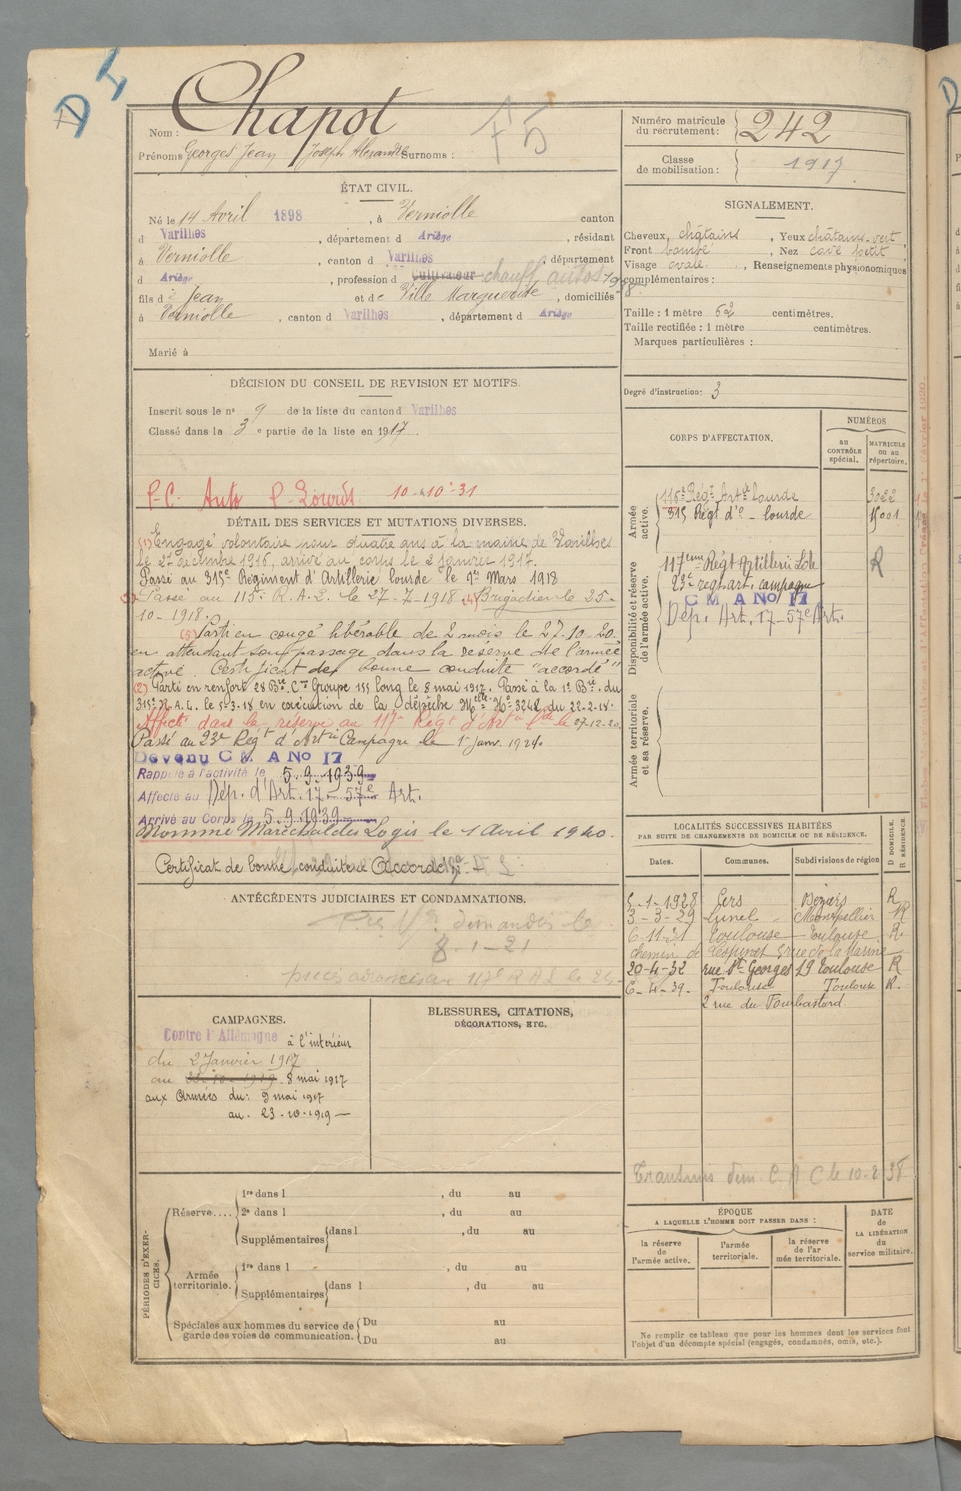 D I
Nom : Chapot
Prénoms Georges Jean Joseph Alexandre Surnoms :
F 5
Numéro matricule du recrutement : 242
Classe de mobilisation : 1917
ÉTAT CIVIL.
Né le 14 Avril 1898, à Verniolle canton
d Varilhes, département d Ariège, résidant
à Verniolle, canton d Varilhes, département
d Ariège, profession d Cultivateur chauff. autos
fils d e Jean et d e Ville Marguerite, domiciliés
à Verniolle, canton d Varilhes, département d Ariège
Marié à
SIGNALEMENT.
Cheveux, châtains, Yeux châtains-vert
Front bombé, Nez cavé petit
Visage ovale., Renseignements physionomiques
complémentaires :
Taille : 1 mètre 62 centimètres.
Taille rectifiée : 1 mètre centimètres.
Marques particulières :
Degré d'instruction : 3
DÉCISION DU CONSEIL DE REVISION ET MOTIFS.
Inscrit sous le n° 9 de la liste du canton d Varilhes
Classé dans la 3 e partie de la liste en 1917.
P.C. Auto P. Lourds 10-10-31
DÉTAIL DES SERVICES ET MUTATIONS DIVERSES.
(1) Engagé volontaire pour quatre ans à la mairie de Varilhes
le 2 décembre 1916, arrivé au corps le 2 janvier 1917.
Passé au 315e Régiment d'Artillerie lourde le 9 Mars 1918
Passé au 115e R.A.L. le 27-7-1918 (4) Brigadier le 25-
10-1918.
(5) Parti en congé libérable de 2 mois le 27-10-20.
en attendant son passage dans la réserve de l'armée
active. Certificat de bonne conduite "accordé"
(2) Parti en renfort 28 Bie. Cie Groupe 155 long le 8 mai 1917. Passé à la 1e Bie. du
315e R.A.L. le 5-3-18 en exécution de la dépêche Mlle No 3242 du 22-2-18.
Affecté dans la réserve au 117e Régt d'Artie Lde le 27-12-20.
Passé au 23e Régt d'Artie Campagne le 1er Janv. 1924.
Devenu C M A No 17
Rappelé à l'activité le 5.9.1939
Affecté au Dép. d'Art. 17 - 57e Art.
Arrivé au Corps le 5.9.1939
Nommé Maréchal des Logis le 1 Avril 1940.
Certificat de bonne conduite Accordé
CORPS D'AFFECTATION.
NUMÉROS
au CONTRÔLE spécial.
MATRICULE ou au répertoire.
Armée active.
116e Régt Artie lourde 3022
315 Régt do - lourde
Disponibilité et réserve de l'armée active.
117ème Régt Artillerie Lde R
23e reg. art. campagne
C M A No 17
Dép. Art. 17 - 57e Art.
Armée territoriale et sa réserve.
LOCALITÉS SUCCESSIVES HABITÉES
PAR SUITE DE CHANGEMENTS DE DOMICILE OU DE RÉSIDENCE.
Dates. Communes. Subdivisions de région D DOMICILE. R RÉSIDENCE
5-1-1928 Cers Béziers R
3-3-29 Lunel Montpellier R
6-11-31 Toulouse Toulouse R
chemin de rue de la Marine
20-4-32 rue St Georges 19 Toulouse R
6-4-39. Toulouse Toulouse R.
2 rue du Tourbastard
Transmis dem. C. A C le 10-2-38
ANTÉCÉDENTS JUDICIAIRES ET CONDAMNATIONS.
demandés le
8-1-21
117e R A L le
CAMPAGNES.
Contre l'Allemagne à l'intérieur
du 2 Janvier 1917
au 8 mai 1917
aux Armées du : 9 mai 1917
au. 23-10-1919
BLESSURES, CITATIONS,
DÉCORATIONS, ETC.
PÉRIODES D'EXERCICES.
Réserve.... 1re dans l , du au
2e dans l , du au
Supplémentaires dans l , du au
Armée territoriale. 1re dans l , du au
Supplémentaires dans l , du au
Spéciales aux hommes du service de garde des voies de communication. Du au
Du au
ÉPOQUE
A LAQUELLE L'HOMME DOIT PASSER DANS :
la réserve de l'armée active.
l'armée territoriale.
la réserve de l'ar mée territoriale.
DATE de LA LIBÉRATION du service militaire.
Ne remplir ce tableau que pour les hommes dont les services font
l'objet d'un décompte spécial (engagés, condamnés, omis, etc.).